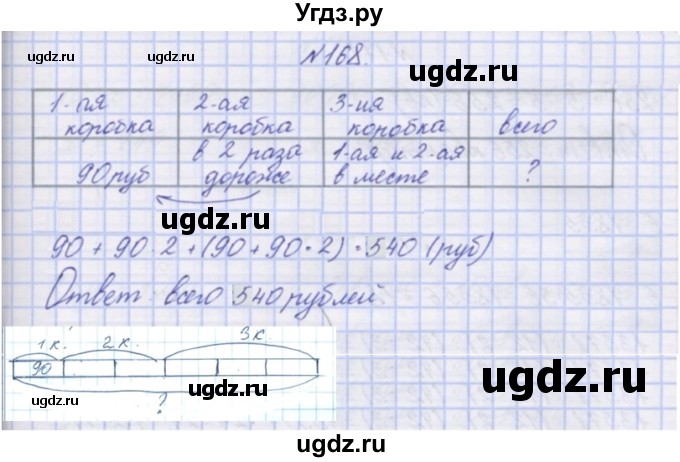 Угдз.ру
ugdz.ru
№168.
ugdz.ru
1-ая коробка 2-ая коробка 3-ия коробка всего
90 руб в 2 раза дороже 1-ая и 2-ая вместе ?
ugdz.ru
90 + 90 2 + (90 + 90 · 2) = 540 (руб)
Ответ: всего 540 рублей
ugdz.ru
ugdz.ru
1 к. 2 к. 3 к.
90
ugdz.ru
ugdz.ru
ugdz.ru
?
ugdz.ru